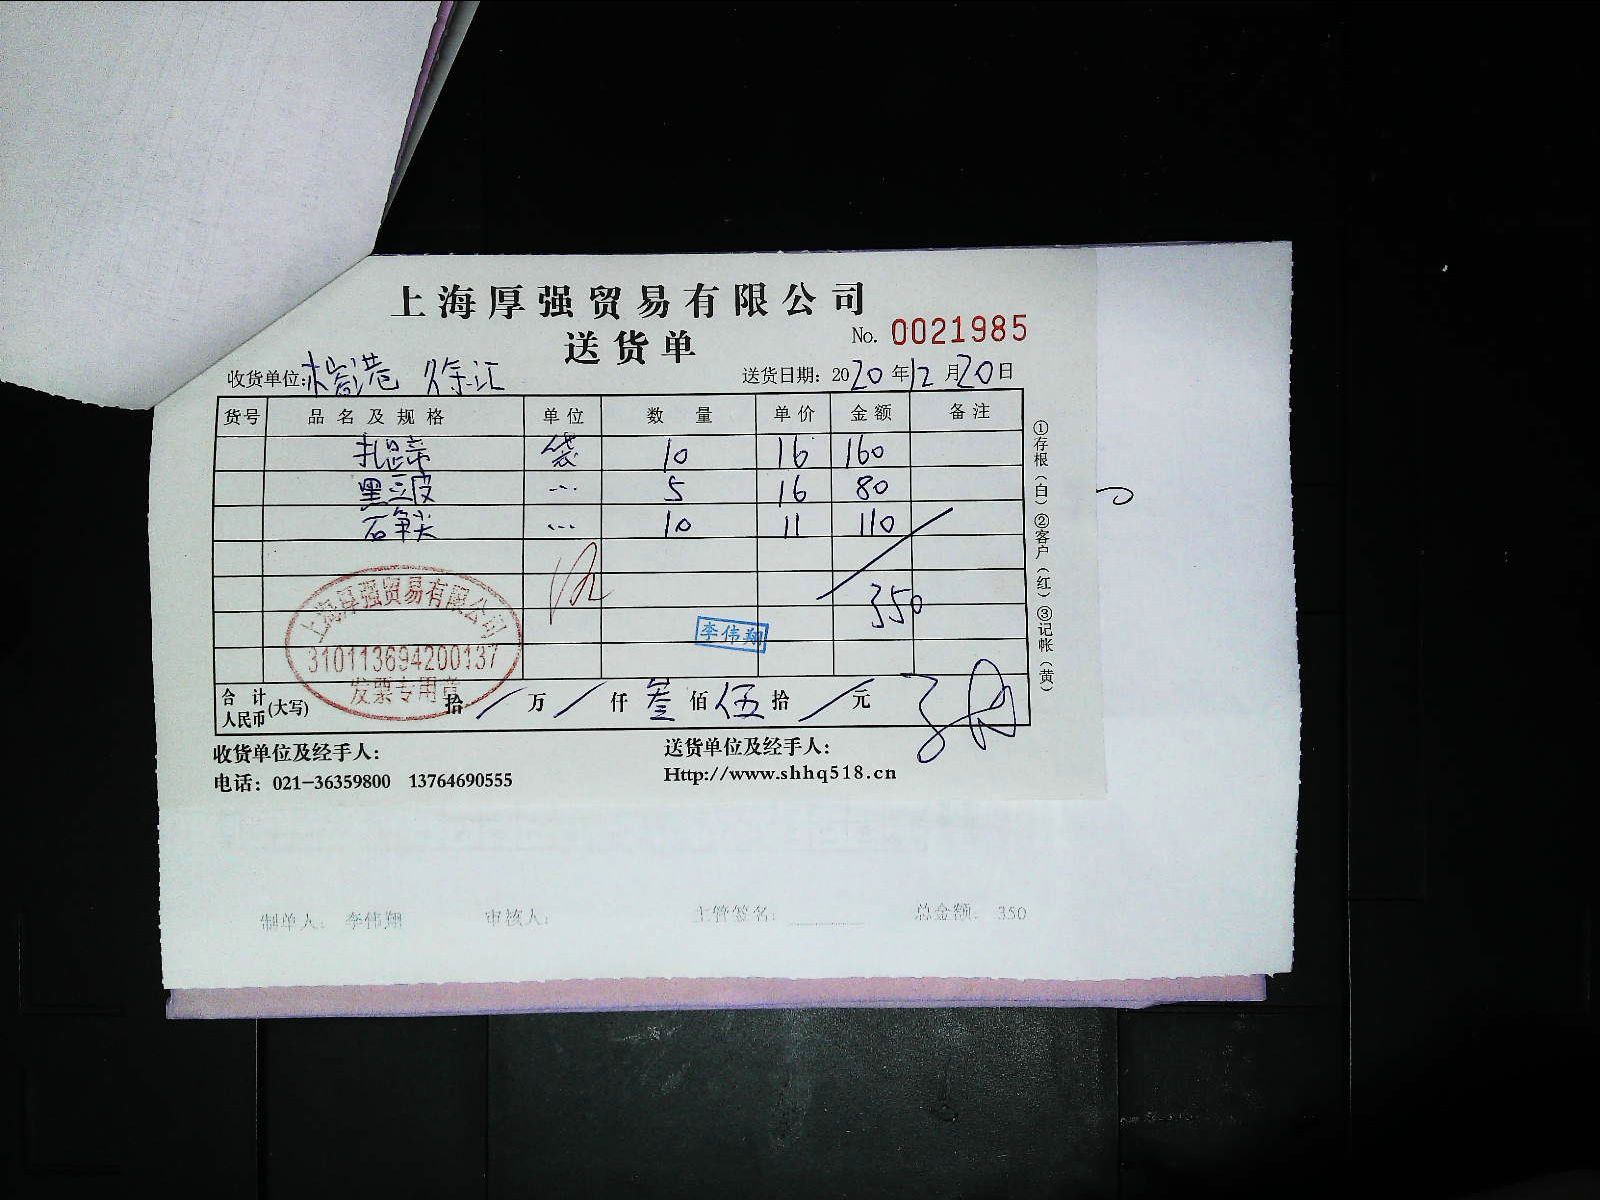 上海厚强贸易有限公司
送货单
No. 0021985
收货单位: 徐汇
送货日期: 2020年12月20日
货号 品名及规格 单位 数量 单价 金额 备注
扎蹄 袋 10 16 160
黑三皮 … 5 16 80
石笋尖 … 10 11 110
350
上海厚强贸易有限公司
310113694200137
发票专用章
李伟翔
合计人民币(大写) 拾 / 万 / 仟 叁 佰 伍 拾 / 元
收货单位及经手人:
送货单位及经手人:
电话: 021-36359800 13764690555
Http://www.shhq518.cn
①存根(白) ②客户(红) ③记帐(黄)
制单人: 李伟翔 审核人: 主管签名: 总金额: 350